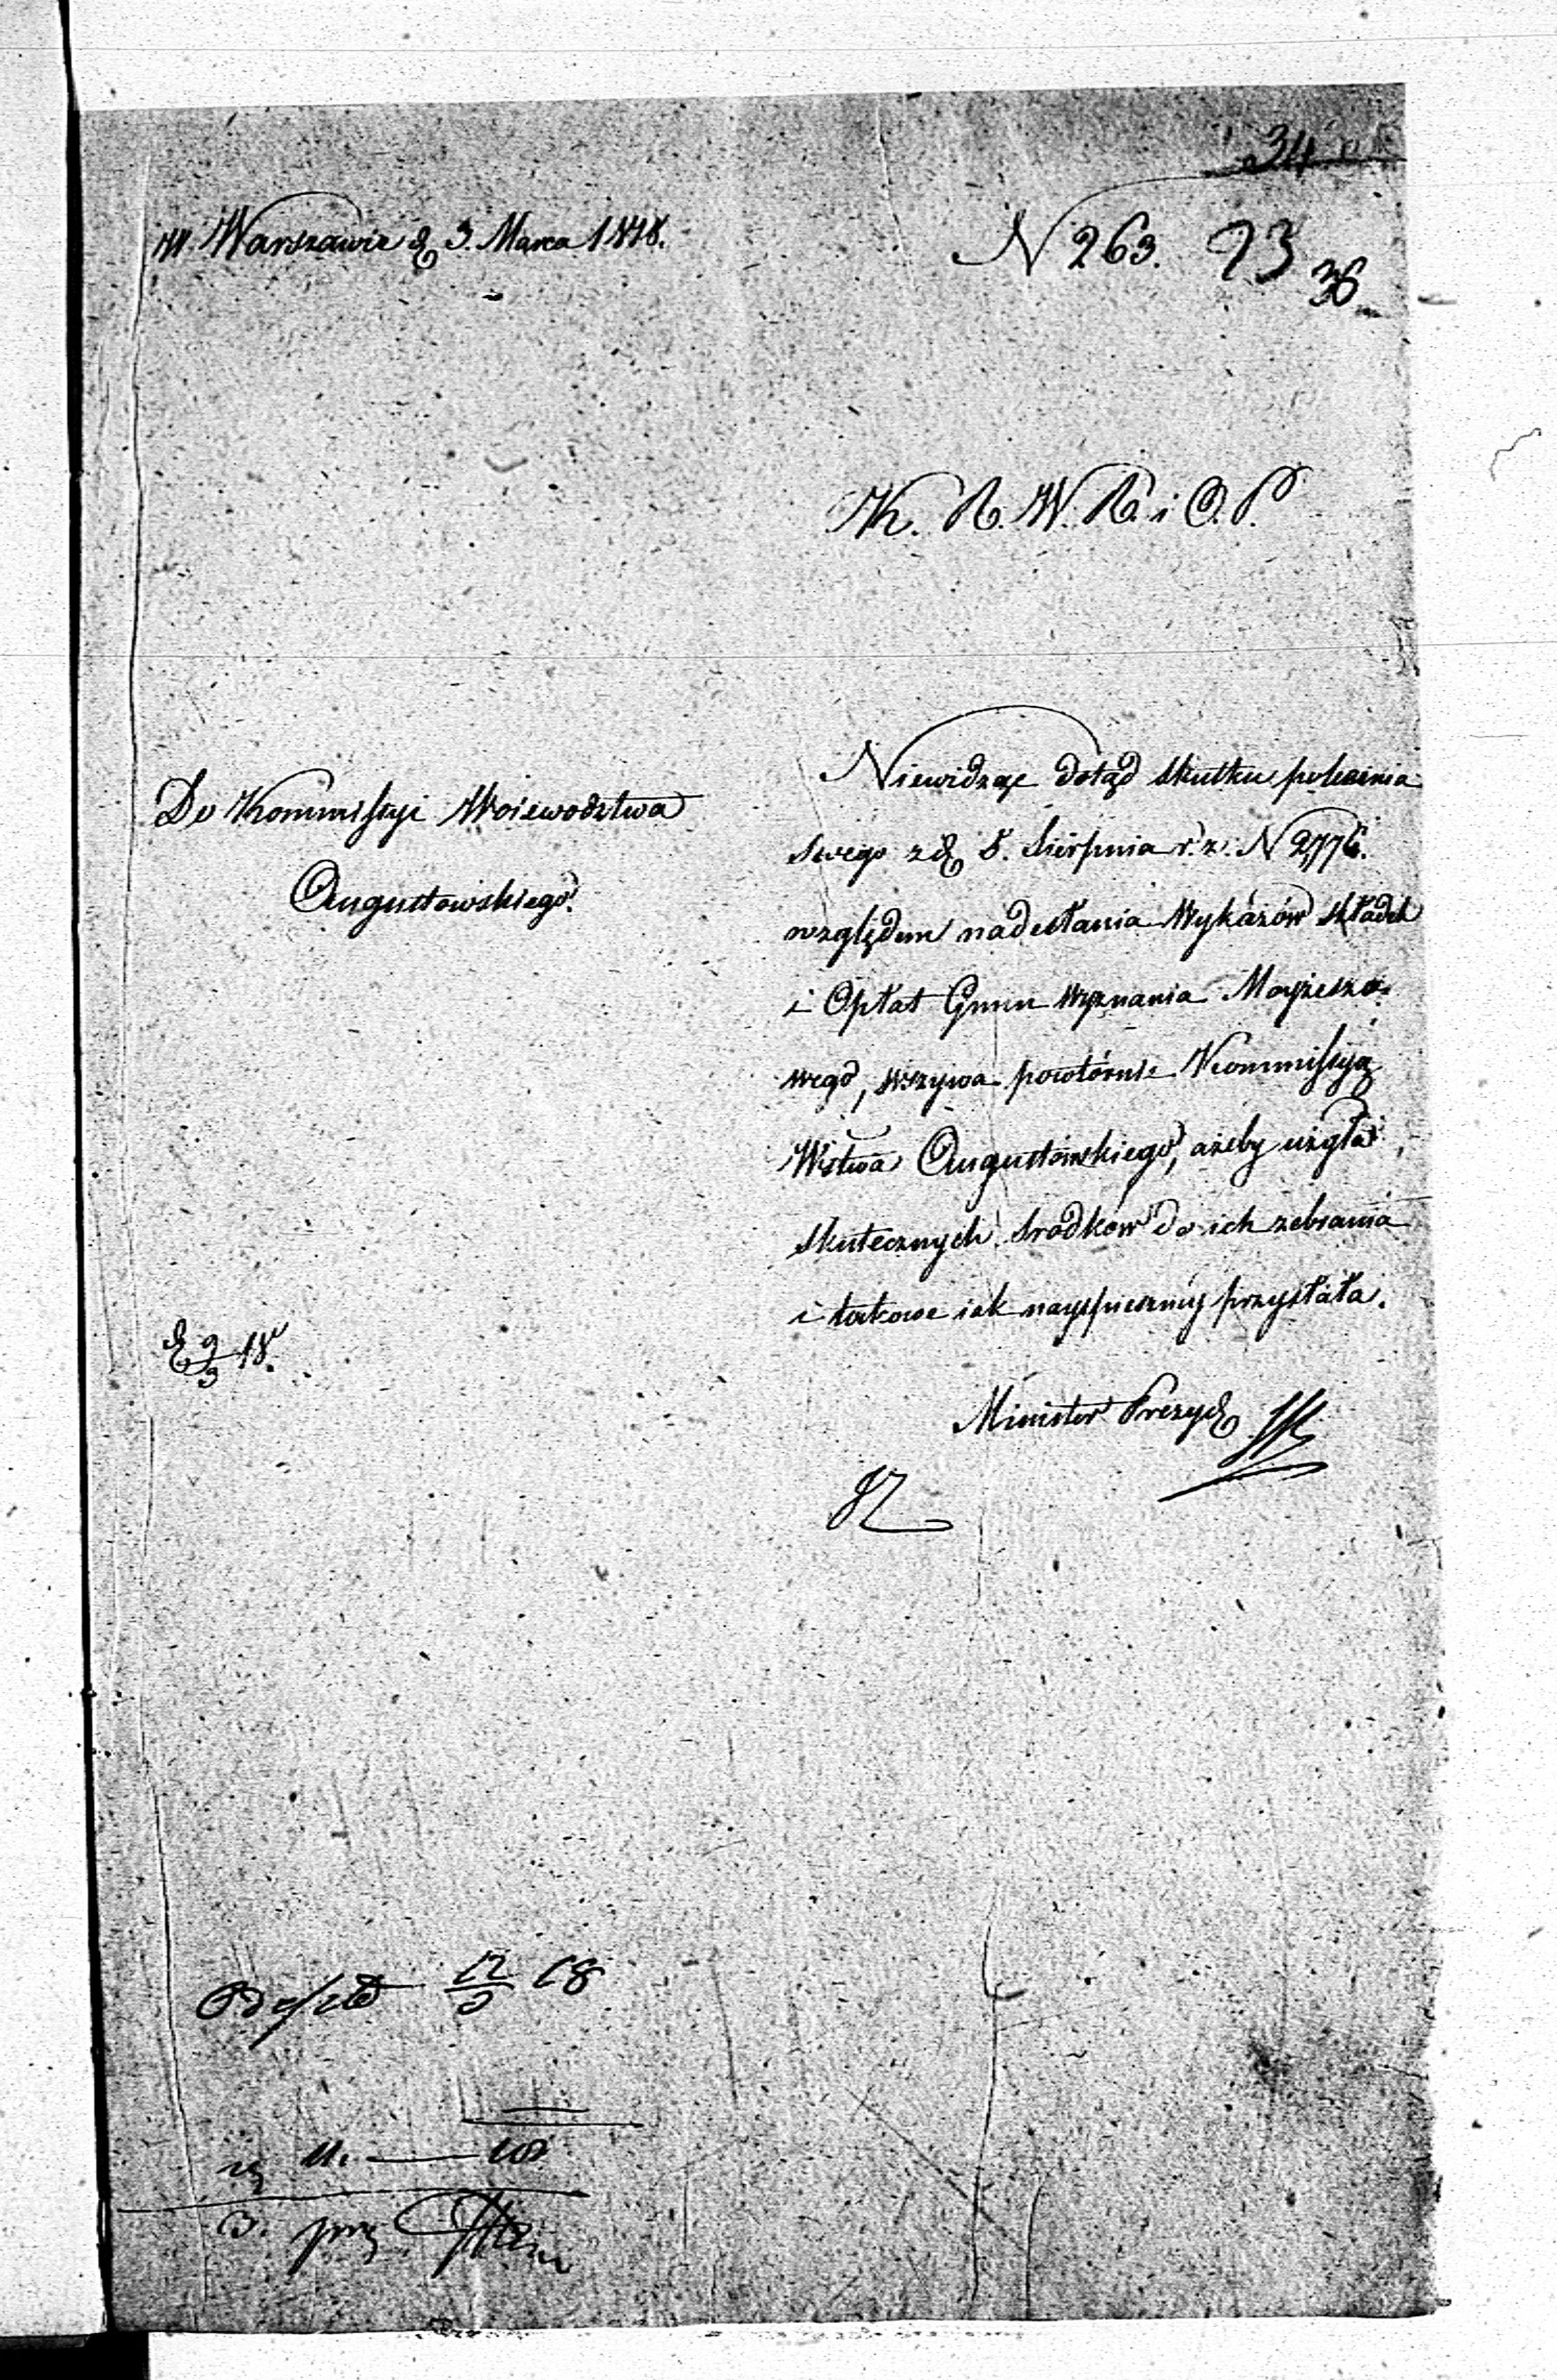 34
W Warszawie d. 3. Marca 1818.
N 263. 23 36
K. R. W. R. i O. P.
Do Kommissyi Woiewodztwa
Augustowskiego.
Niewidząc dotąd skutku polecenia
swego z d. 5. Sierpnia r. z. N 2776.
względem nadesłania Wykazów składek
i Opłat Gmin Wyznania Mojżeszo-
wego, wzywa powtórnie Kommissyą
Wsztwa Augustowskiego, ażeby użyła
skutecznych srodków do ich zebrania
i takowe iak nayspieszniey przysłała.
Minister Prezyd.
d 9/3 18.
Odesłał 12/3 18